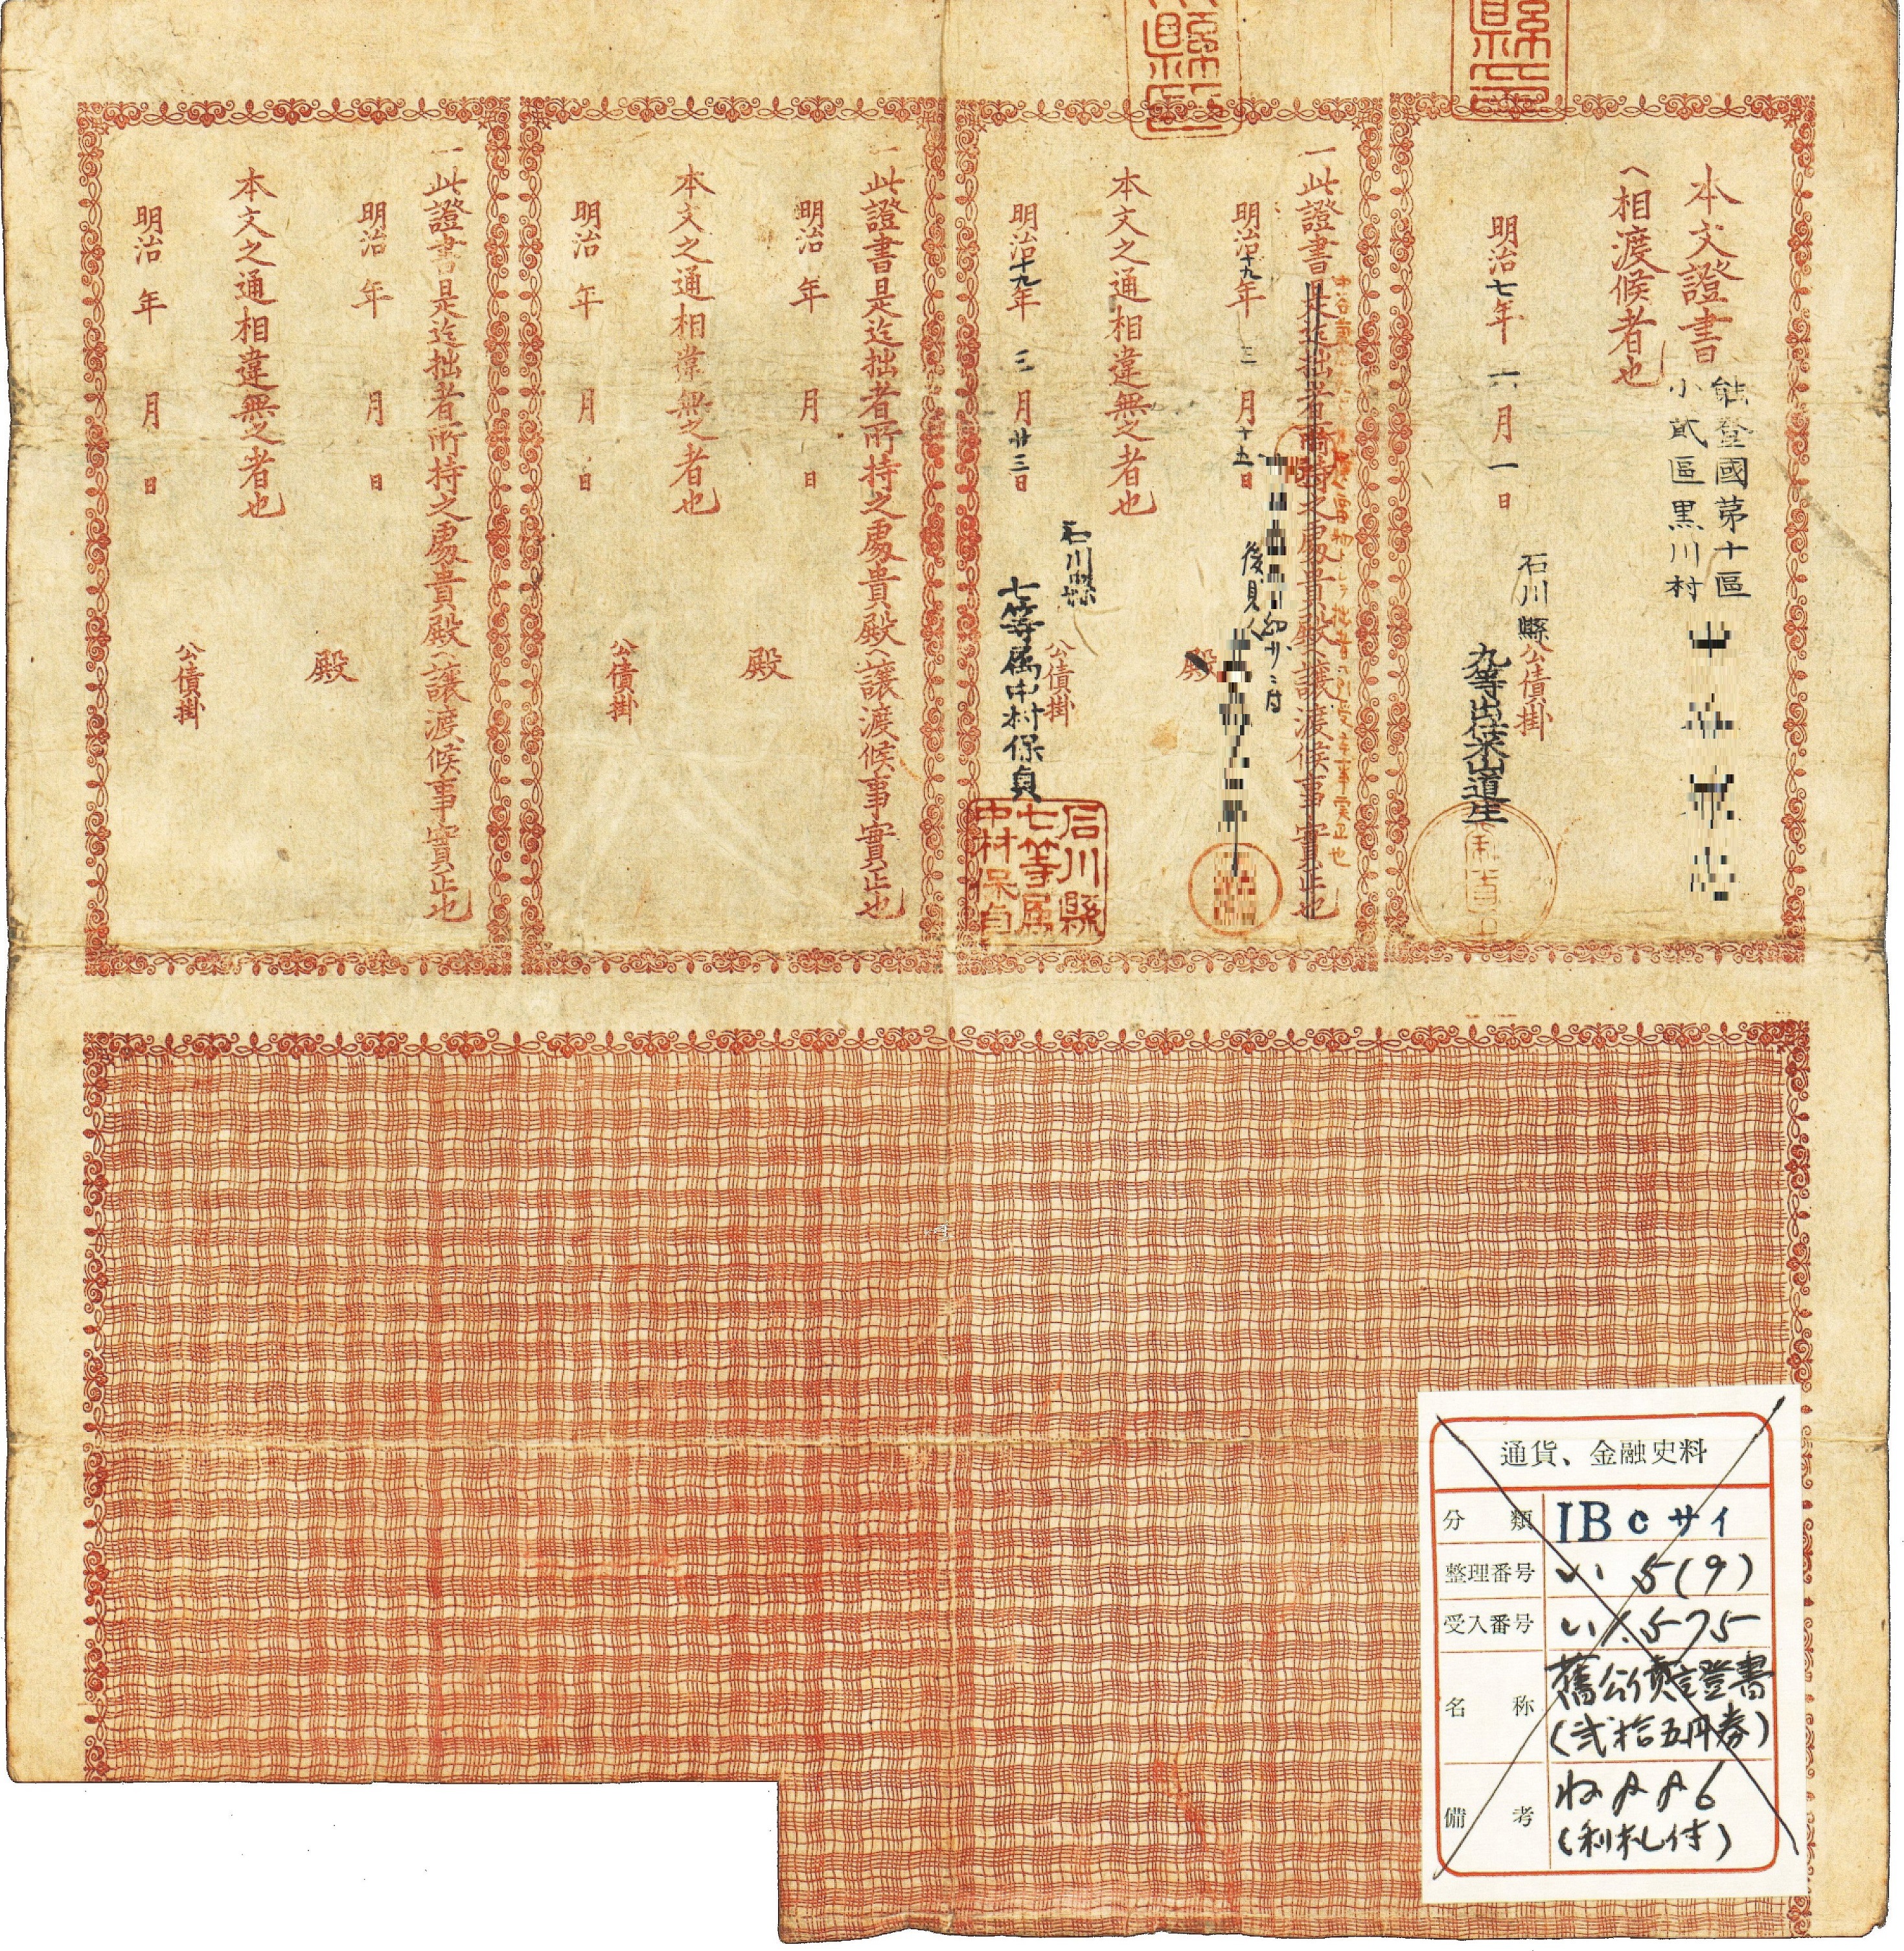 縣印
縣印
本文證書
能登國第十區
小貮區黒川村
へ相渡候者也
明治七年 六月一日
石川縣公債掛
九等出仕米山道生
一此證書是迄拙者所持之處貴殿へ讓渡候事實正也
明治十九年 三月十五日
後見人
殿
本文之通相違無之者也
明治十九年 三月廿三日
石川縣
公債掛
七等属中村保貞
石川縣
七等属
中村保貞
一此證書是迄拙者所持之處貴殿へ讓渡候事實正也
明治 年 月 日
殿
本文之通相違無之者也
明治 年 月 日
公債掛
一此證書是迄拙者所持之處貴殿へ讓渡候事實正也
明治 年 月 日
殿
本文之通相違無之者也
明治 年 月 日
公債掛
通貨、金融史料
分類 IBcサイ
整理番号 い 5(9)
受入番号 い1.575
名称 舊公債證書
(弐拾五円券)
備考
(利札付)